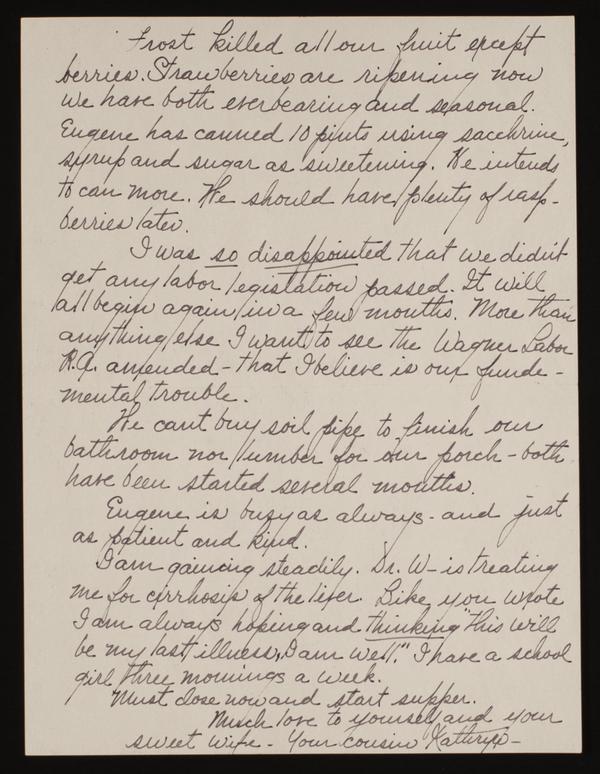 Frost killed all our fruit except
berries. Strawberries are ripening now
we have both everbearing and seasonal.
Eugene has canned 10 pints using sacchrine,
syrup and sugar as sweetening. He intends
to can more. We should have plenty of rasp-
berries later.
I was so disappointed that we didn't
get any labor legistation passed. It will
all begin again in a few months. More than
anything else I want to see the Wagner Labor
R.A. amended - that I believe is our funde-
mental trouble.
We cant buy soil pipe to finish our
bathroom nor lumber for our porch - both
have been started several months.
Eugene is busy as always - and just
as patient and kind.
I am gaining steadily. Dr. W- is treating
me for cirrhosis of the liver. Like you wrote
I am always hoping and thinking "this will
be my last illness, I am well." I have a school
girl three mornings a week.
Must close now and start supper.
Much love to yourself and your
sweet wife - Your cousin Kathryn -